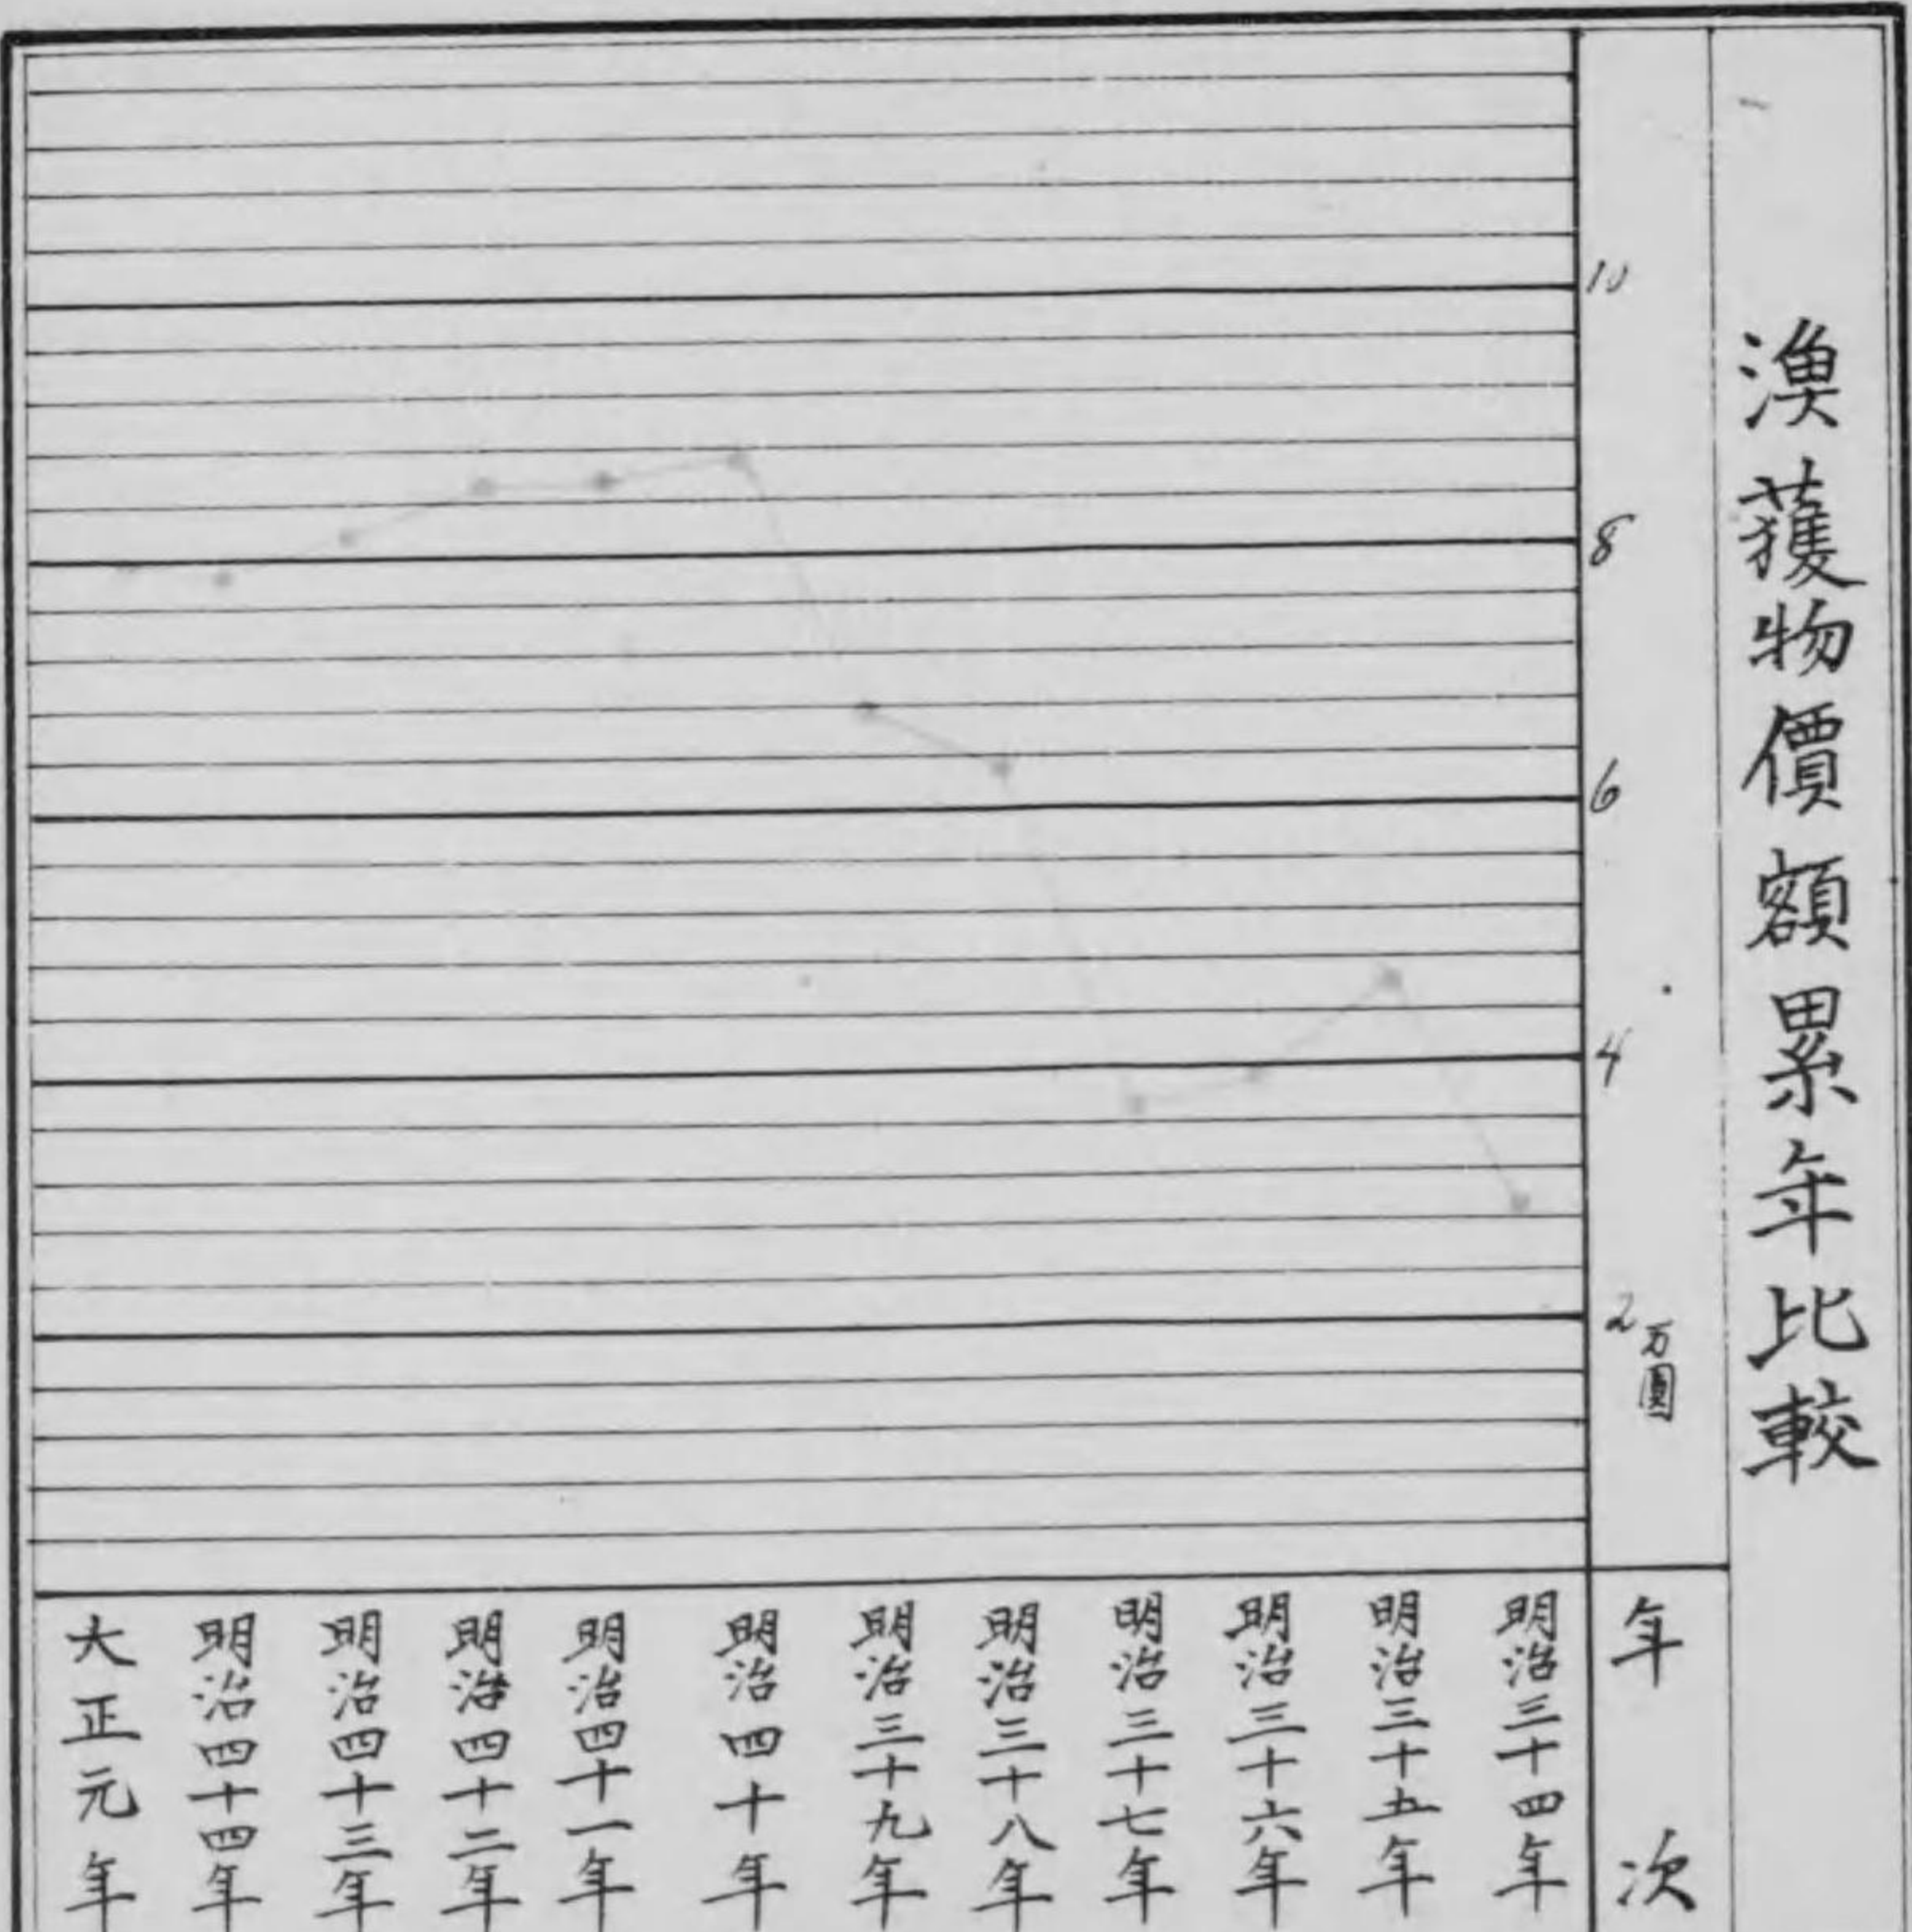 漁獲物價額累年比較
10
8
6
4
2万圓
年次
明治三十四年
明治三十五年
明治三十六年
明治三十七年
明治三十八年
明治三十九年
明治四十年
明治四十一年
明治四十二年
明治四十三年
明治四十四年
大正元年